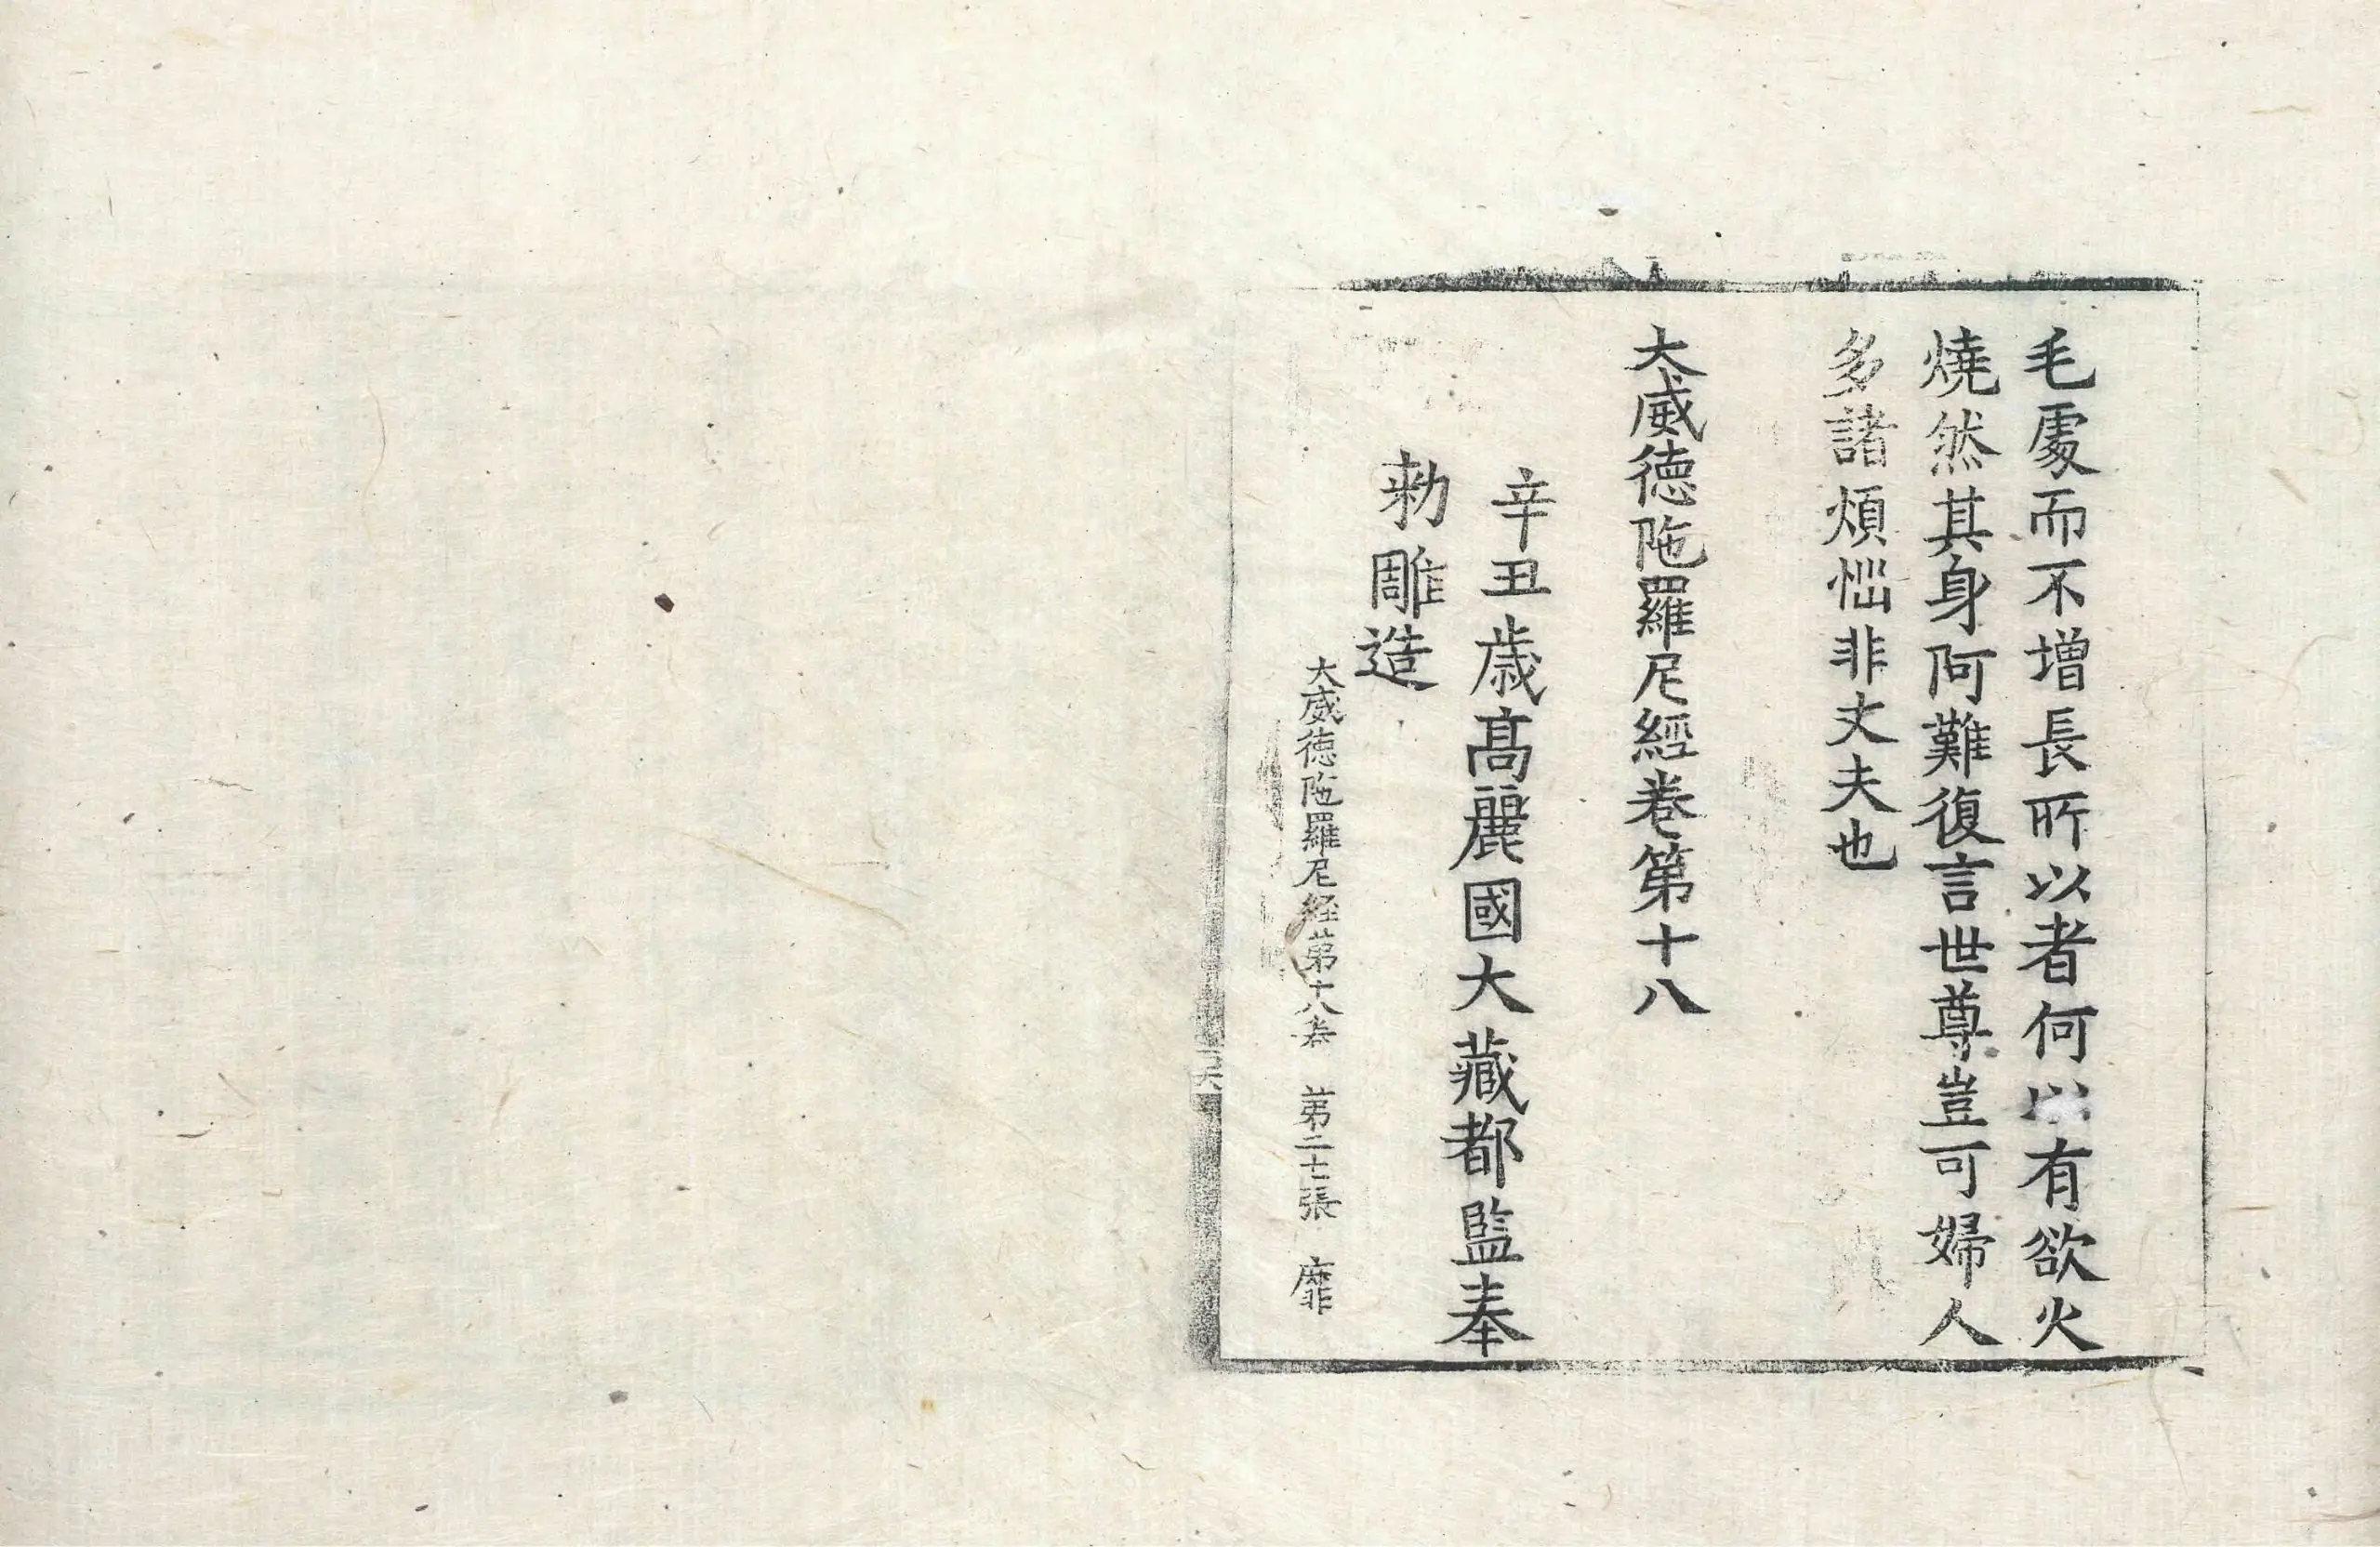 毛處而不增長所以者何以有欲火
燒然其身阿難復言世尊豈可婦人
多諸煩惱非丈夫也
大威德陁羅尼經卷第十八
辛丑歲髙麗國大藏都監奉
勑雕造
大威德陁羅尼經第十八卷 第二十七張 靡